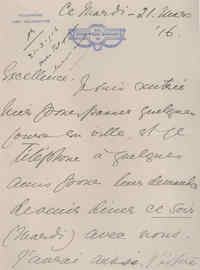 TELEPHONE
Ce Mardi - 21. Mars
'16.
Excellence. Je suis rentré
hier pour passer quelques
jours en ville, et je
Téléphone à quelques
amis pour leur demander
de venir diner ce soir
(Mardi) avec nous.
J'aurai aussi